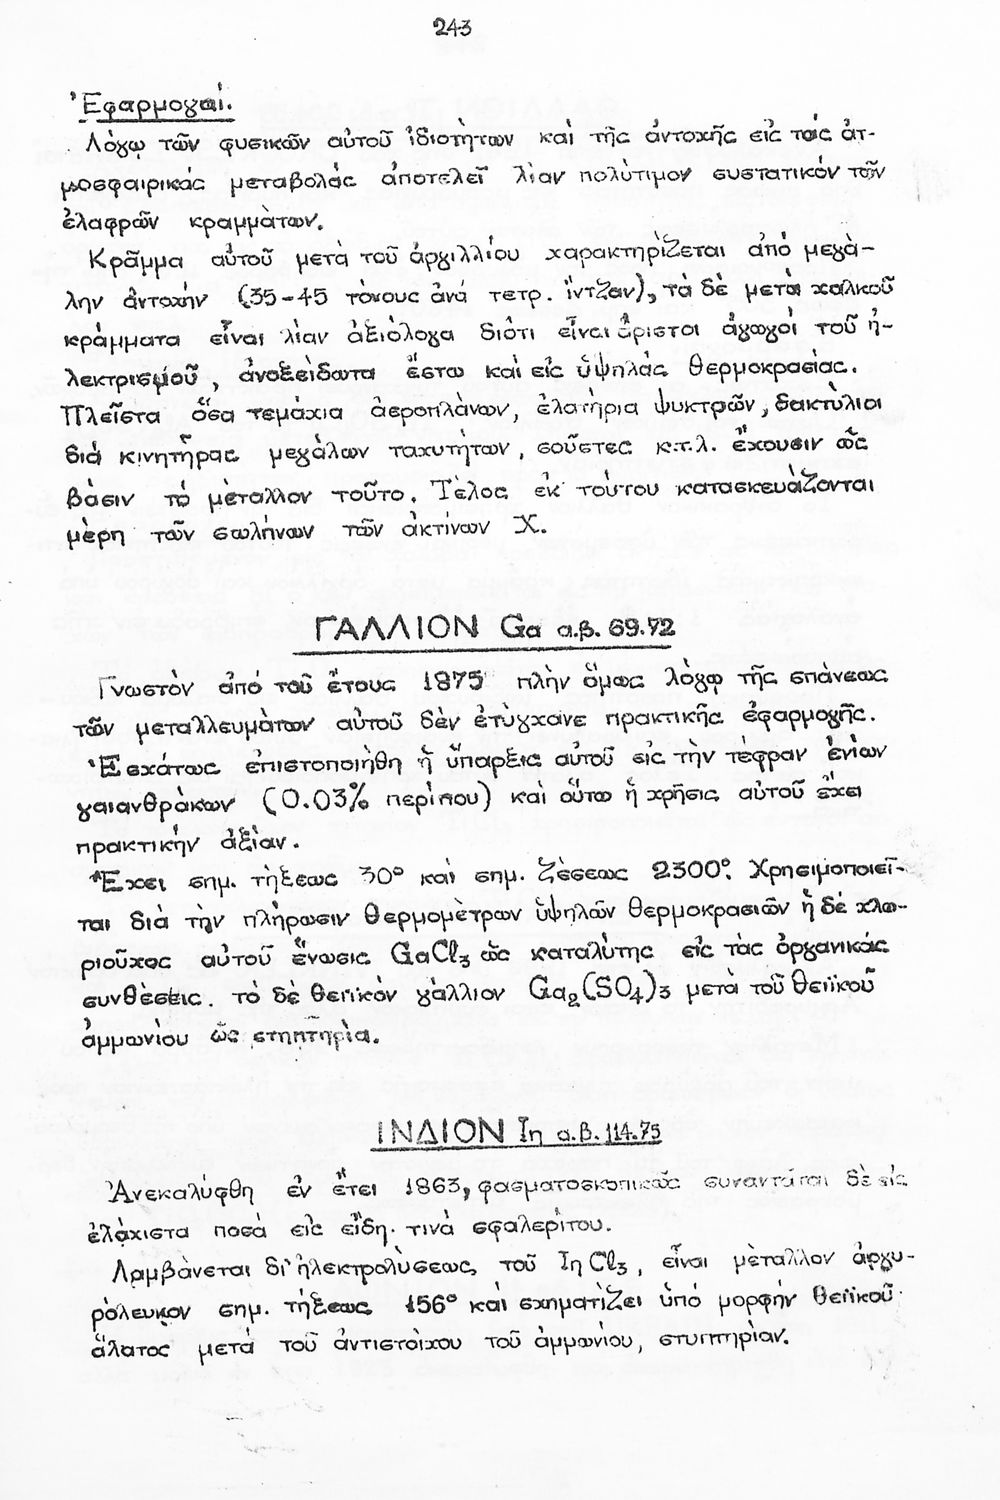 243
Ἐφαρμογαί.
Λόγῳ τῶν φυσικῶν αὐτοῦ ἰδιοτήτων καὶ τῆς ἀντοχῆς εἰς τάς ἀτ-
μοσφαιρικάς μεταβολάς ἀποτελεῖ λίαν πολύτιμον συστατικόν τῶν
ἐλαφρῶν κραμμάτων.
Κρᾶμμα αὐτοῦ μετά τοῦ ἀργιλλίου χαρακτηρίζεται ἀπό μεγά-
λην ἀντοχήν (35-45 τόνους ἀνά τετρ. ἴντζαν), τά δὲ μετά χαλκοῦ
κράμματα εἶναι λίαν ἀξιόλογα διότι εἶναι ἄριστοι ἀγωγοί τοῦ ἠ-
λεκτρισμοῦ, ἀνοξείδωτα ἔστω καί εἰς ὑψηλάς θερμοκρασίας.
Πλεῖστα ὅσα τεμάχια ἀεροπλάνων, ἐλατήρια ψυκτρῶν, δακτύλιοι
διά κινητῆρας μεγάλων ταχυτήτων, σοῦστες κ.τ.λ. ἔχουσιν ὡς
βάσιν τό μέταλλον τοῦτο. Τέλος ἐκ τούτου κατασκευάζονται
μέρη τῶν σωλήνων τῶν ἀκτίνων Χ.
ΓΑΛΛΙΟΝ Ga α.β. 69.72
Γνωστόν ἀπό τοῦ ἔτους 1875 πλήν ὅμως λόγῳ τῆς σπάνεως
τῶν μεταλλευμάτων αὐτοῦ δὲν ἐτύγχανε πρακτικῆς ἐφαρμογῆς.
Ἐσχάτως ἐπιστοποιήθη ἡ ὕπαρξις αὐτοῦ εἰς τὴν τέφραν ἐνίων
γαιανθράκων (0.03% περίπου) καί οὕτω ἡ χρῆσις αὐτοῦ ἔχει
πρακτικήν ἀξίαν.
Ἔχει σημ. τήξεως 30° καί σημ. ζέσεως 2300°. Χρησιμοποιεῖ-
ται διά τήν πλήρωσιν θερμομέτρων ὑψηλῶν θερμοκρασιῶν ἡ δέ χλω-
ριοῦχος αὐτοῦ ἕνωσις GaCl₃ ὡς καταλύτης εἰς τάς ὀργανικάς
συνθέσεις. τό δέ θειϊκόν γάλλιον Ga₂(SO₄)₃ μετά τοῦ θειϊκοῦ
ἀμμωνίου ὡς στηπτηρία.
ΙΝΔΙΟΝ In α.β. 114.75
Ἀνεκαλύφθη ἐν ἔτει 1863, φασματοσκοπικῶς συναντᾶται δὲ εἰς
ἐλάχιστα ποσά εἰς εἴδη τινά σφαλερίτου.
Λαμβάνεται δι' ἠλεκτρολύσεως τοῦ InCl₃, εἶναι μέταλλον ἀργυ-
ρόλευκον σημ. τήξεως 156° καί σχηματίζει ὑπό μορφήν θειϊκοῦ
ἅλατος μετά τοῦ ἀντιστοίχου τοῦ ἀμμωνίου, στυπτηρίαν.